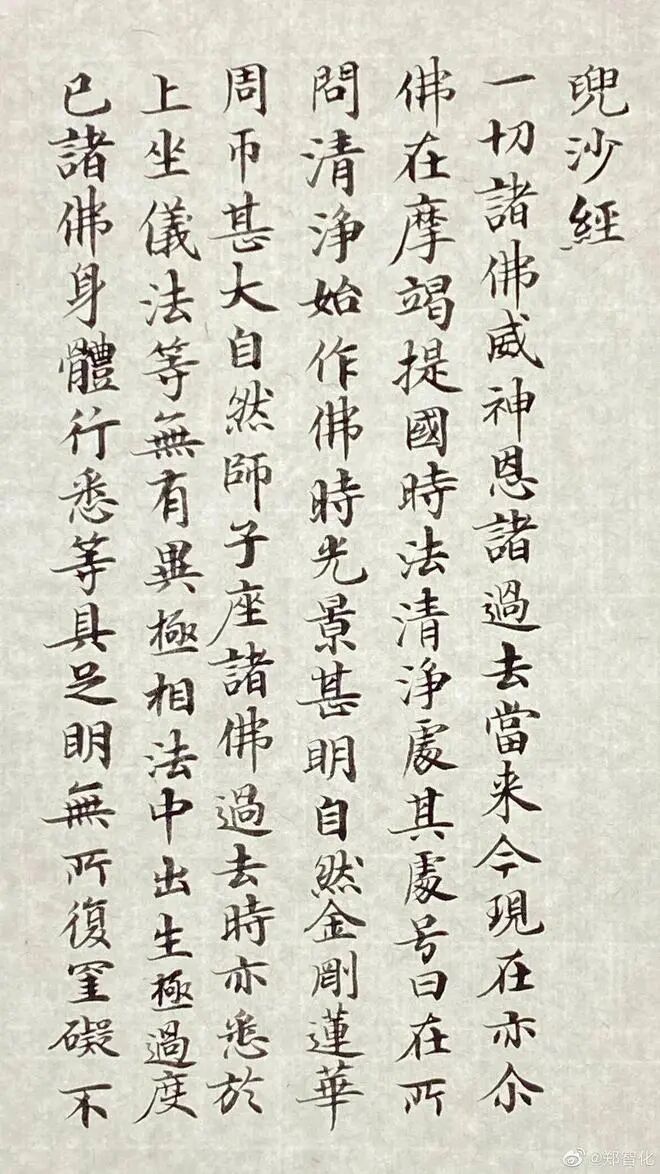 兜沙經
一切諸佛威神恩諸過去當来今現在亦尒
佛在摩竭提國時法清淨處其處号曰在所
問清淨始作佛時光景甚明自然金剛蓮華
周帀甚大自然師子座諸佛過去時亦悉於
上坐儀法等無有異極相法中出生極過度
已諸佛身體行悉等具足明無所復罣礙不
@郑智化